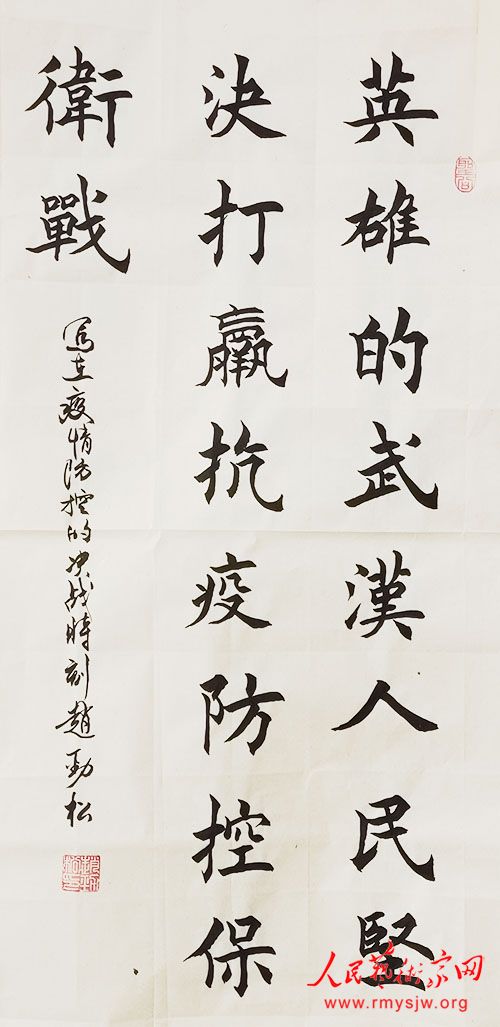 英雄的武漢人民堅
決打贏抗疫防控保
衛戰
写在疫情防控的决战時刻趙勁松
人民藝術家网
www.rmysjw.org